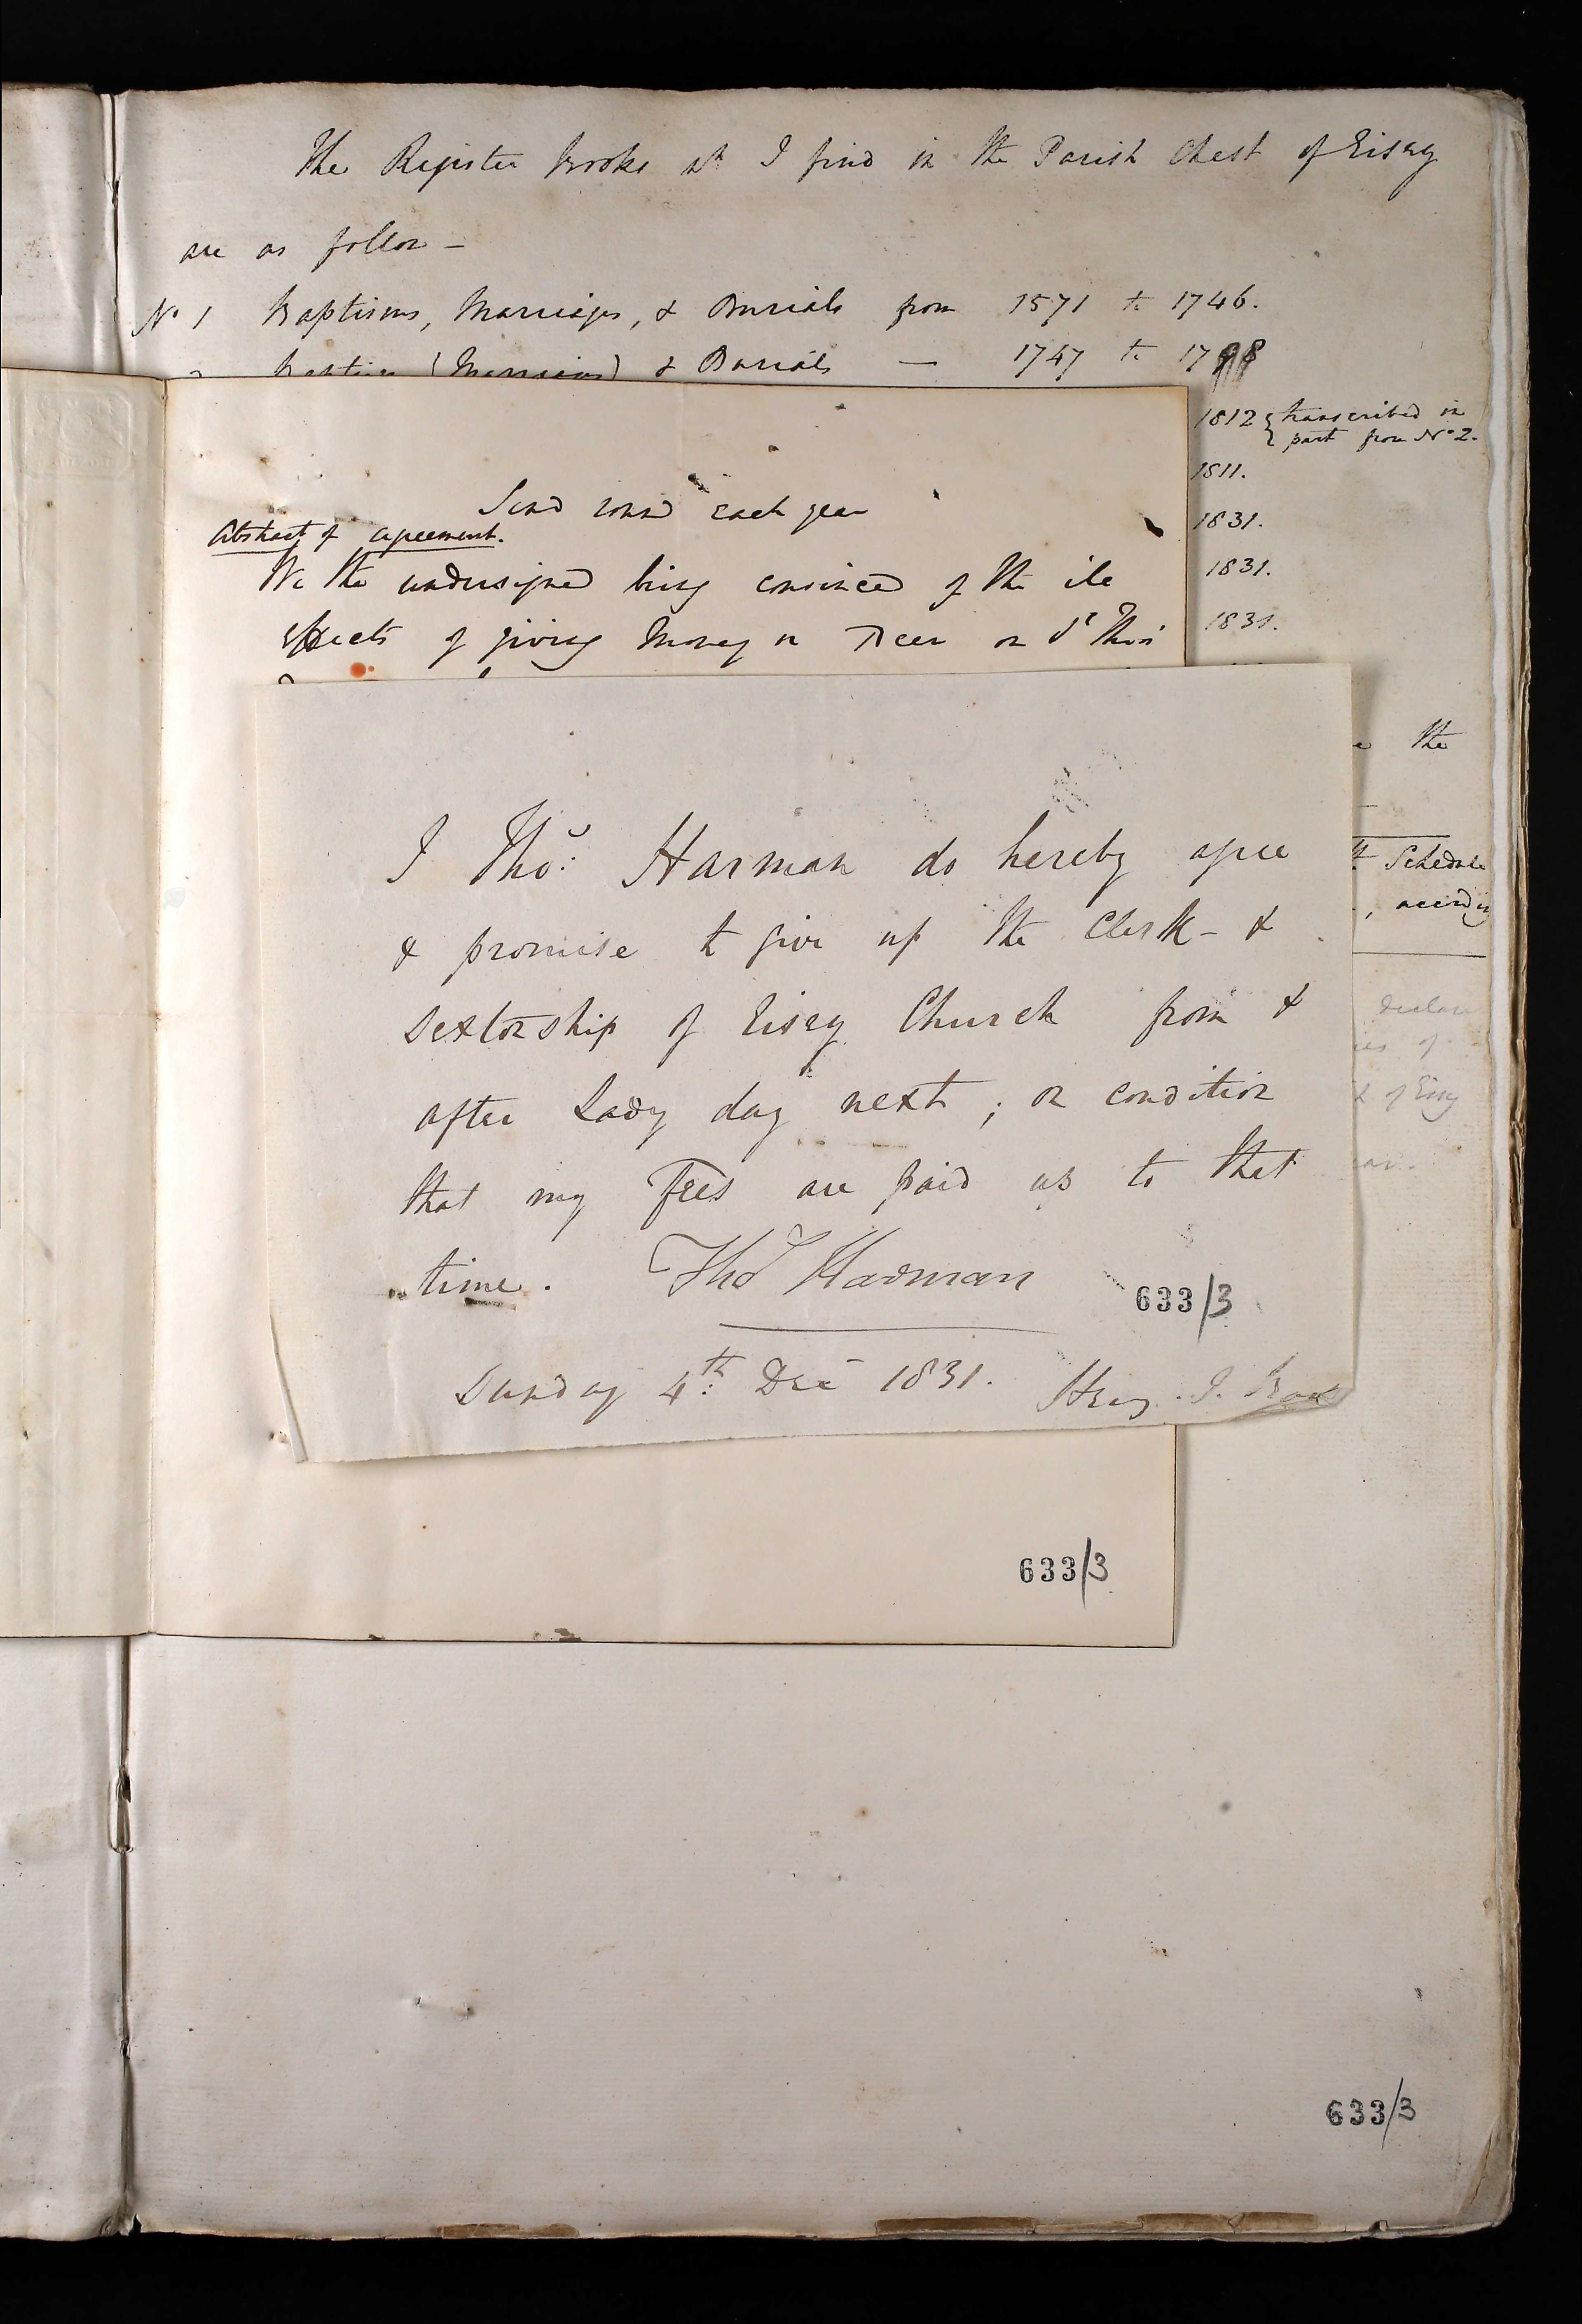 The Register Books wh I find in the Parish Chest of Eisey
are as follow –
No 1 Baptisms, Marriages, & Burials from 1571 to 1746.
Baptism (Marriages) & Burials — 1747 to 1798
1812 { transcribed in
part from No 2.
1811.
1831.
1831.
1831.
the
Schedule
, according
declare
of
of Eisey
Send round each year
Abstract of agreement.
We the undersigned being convinced of the ile
effects of giving Money or Beer on St Thos
I Thos: Harman do hereby agree
& promise to give up the Clerk- &
Sextonship of Eisey Church from &
after Lady day next ; on condition
that my Fees are paid up to that
time. Thos Harman
633/3
Sunday 4th: Dec 1831. Hen. J.
633/3
633/3